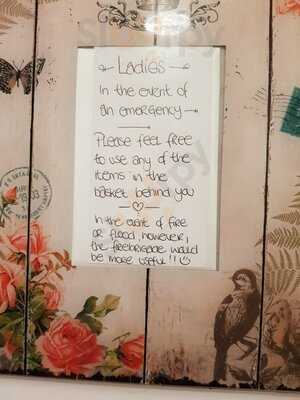 Ladies
In the event of
an emergency
Please feel free
to use any of the
items in the
basket behind you
In the event of fire
or flood, however,
the firebrigade would
be more useful!!